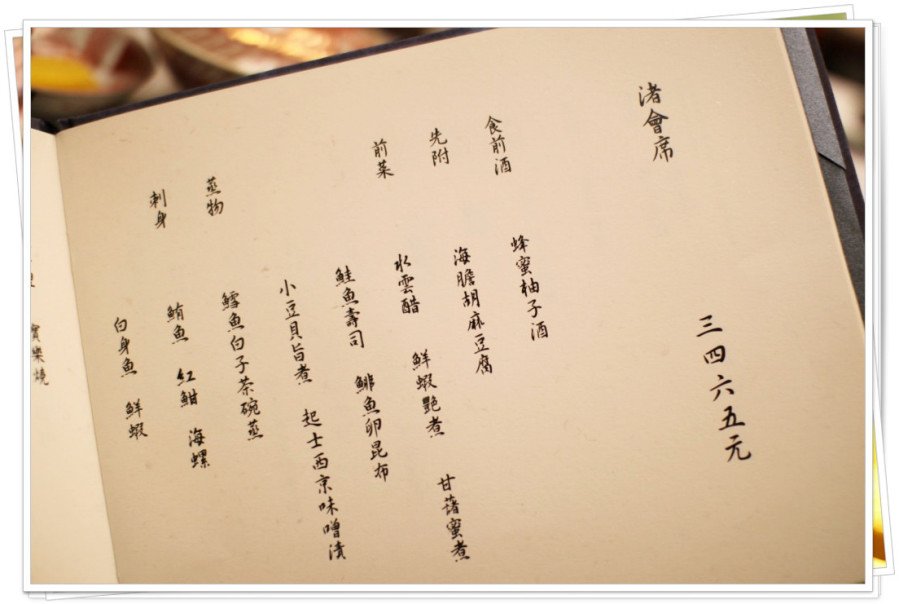 渚會席
三四六五元
食前酒
蜂蜜柚子酒
先附
海膽胡麻豆腐
前菜
水雲醋 鮮蝦艷煮 甘藷蜜煮
鮭魚壽司 鯡魚卵昆布
小豆貝旨煮 起士西京味噌漬
蒸物
鱈魚白子茶碗蒸
刺身
鮪魚 紅魽 海螺
白身魚 鮮蝦
寶樂燒